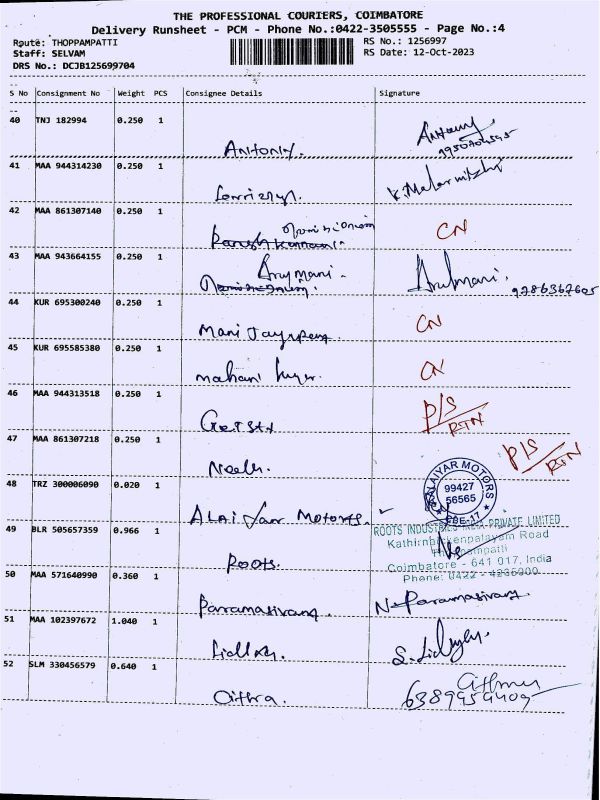 THE PROFESSIONAL COURIERS, COIMBATORE
Delivery Runsheet - PCM - Phone No.:0422-3505555 - Page No.:4
Route: THOPPAMPATTI RS No.: 1256997
Staff: SELVAM RS Date: 12-Oct-2023
DRS No.: DCJB125699704
S No Consignment No Weight PCS Consignee Details Signature
40 TNJ 182994 0.250 1
Antony. Antony 9950704545
41 MAA 944314230 0.250 1
K. Malarmizhi
42 MAA 861307140 0.250 1
CN
43 MAA 943664155 0.250 1
Arulmani. Arulmani. 9786367605
44 KUR 695300240 0.250 1
Mani CN
45 KUR 695585380 0.250 1
CN
46 MAA 944313518 0.250 1
P/S RTN
47 MAA 861307218 0.250 1
P/S RTN
48 TRZ 300006090 0.020 1
ALAIYAR MOTORS
99427
56565
CBE-17
Alai yar Motors.
49 BLR 505657359 0.966 1
ROOTS INDUSTRIES INDIA PRIVATE LIMITED
Kathirnaickenpalayam Road
Thoppampatti
Coimbatore - 641 017, India
Phone: 0422 - 4235000
Roots.
50 MAA 571640990 0.360 1
Parramasivang. N. Paramasivang
51 MAA 102397672 1.040 1
52 SLM 330456579 0.640 1
Cithra. 6389959409